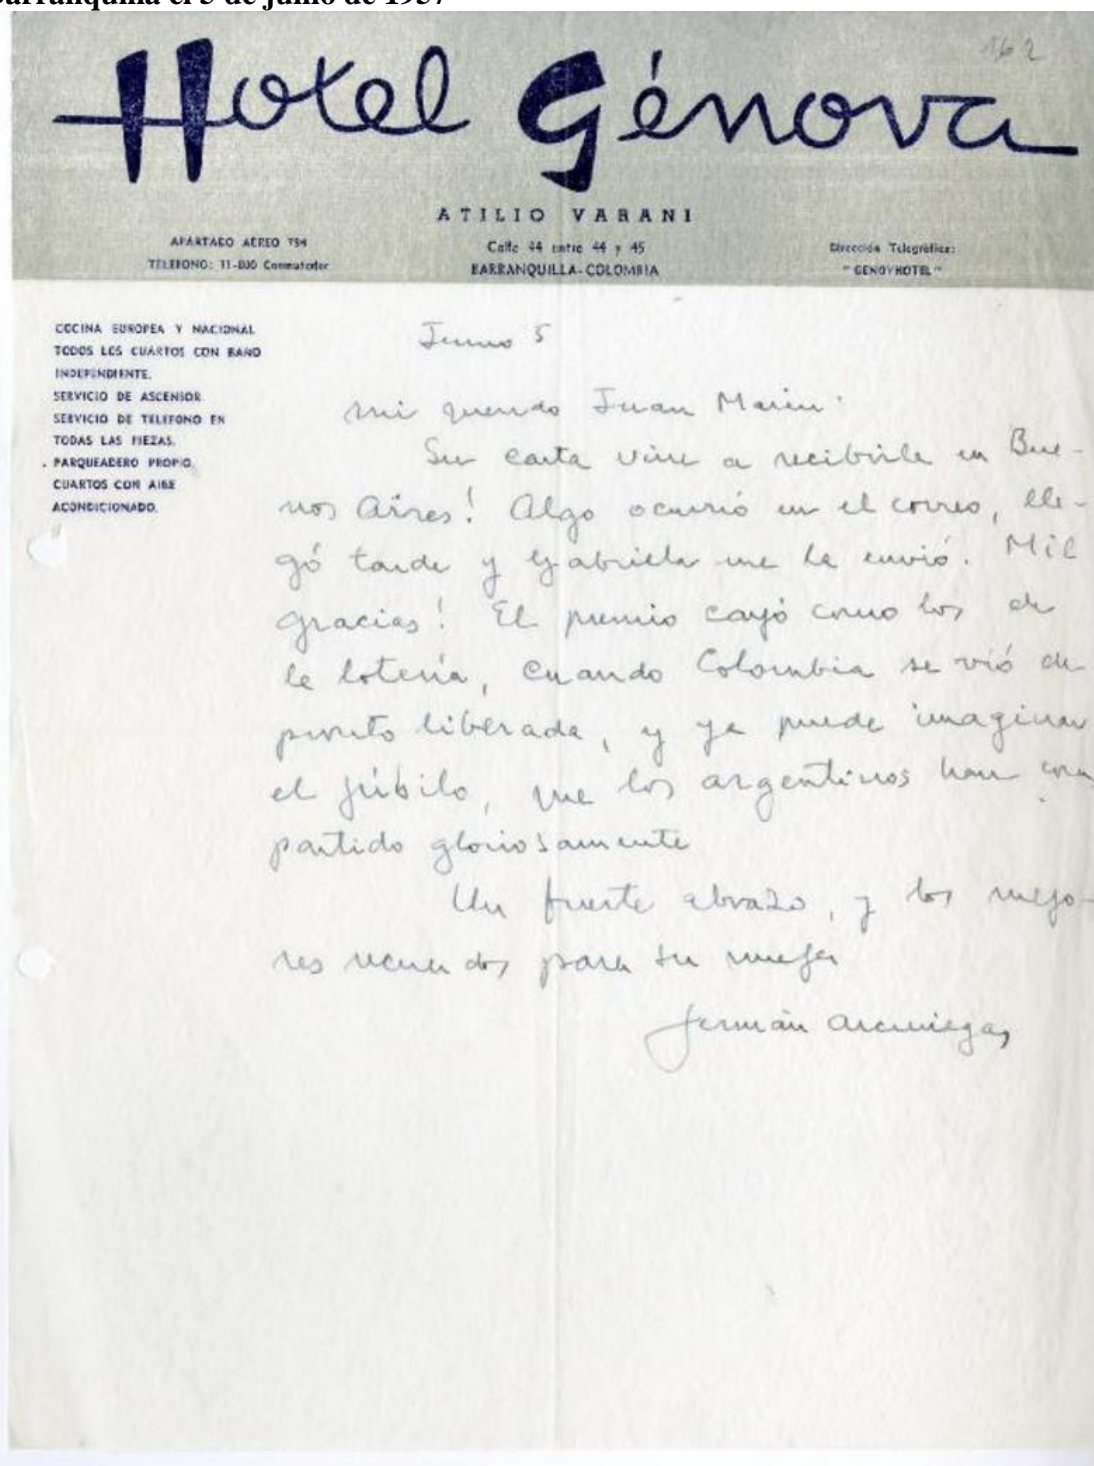 Barranquilla el 5 de junio de 1957
162
Hotel Génova
ATILIO VARANI
APARTADO AEREO 794
TELEFONO: 11-800 Conmutador
Calle 44 entre 44 y 45
BARRANQUILLA-COLOMBIA
Dirección Telegráfica:
"GENOVHOTEL"
COCINA EUROPEA Y NACIONAL
TODOS LOS CUARTOS CON BAÑO
INDEPENDIENTE.
SERVICIO DE ASCENSOR.
SERVICIO DE TELEFONO EN
TODAS LAS PIEZAS.
PARQUEADERO PROPIO.
CUARTOS CON AIRE
ACONDICIONADO.
Junio 5
Mi querido Juan Marín:
Su carta vine a recibirla en Bue-
nos Aires! Algo ocurrió en el correo, lle-
gó tarde y Gabriella me la envió. Mil
gracias! El premio cayó como los de
la lotería, cuando Colombia se vió de
pronto liberada, y ya puede imaginar
el júbilo, que los argentinos han com
partido gloriosamente
Un fuerte abrazo, y los mejo-
res recuerdos para su mujer
Germán Arciniegas